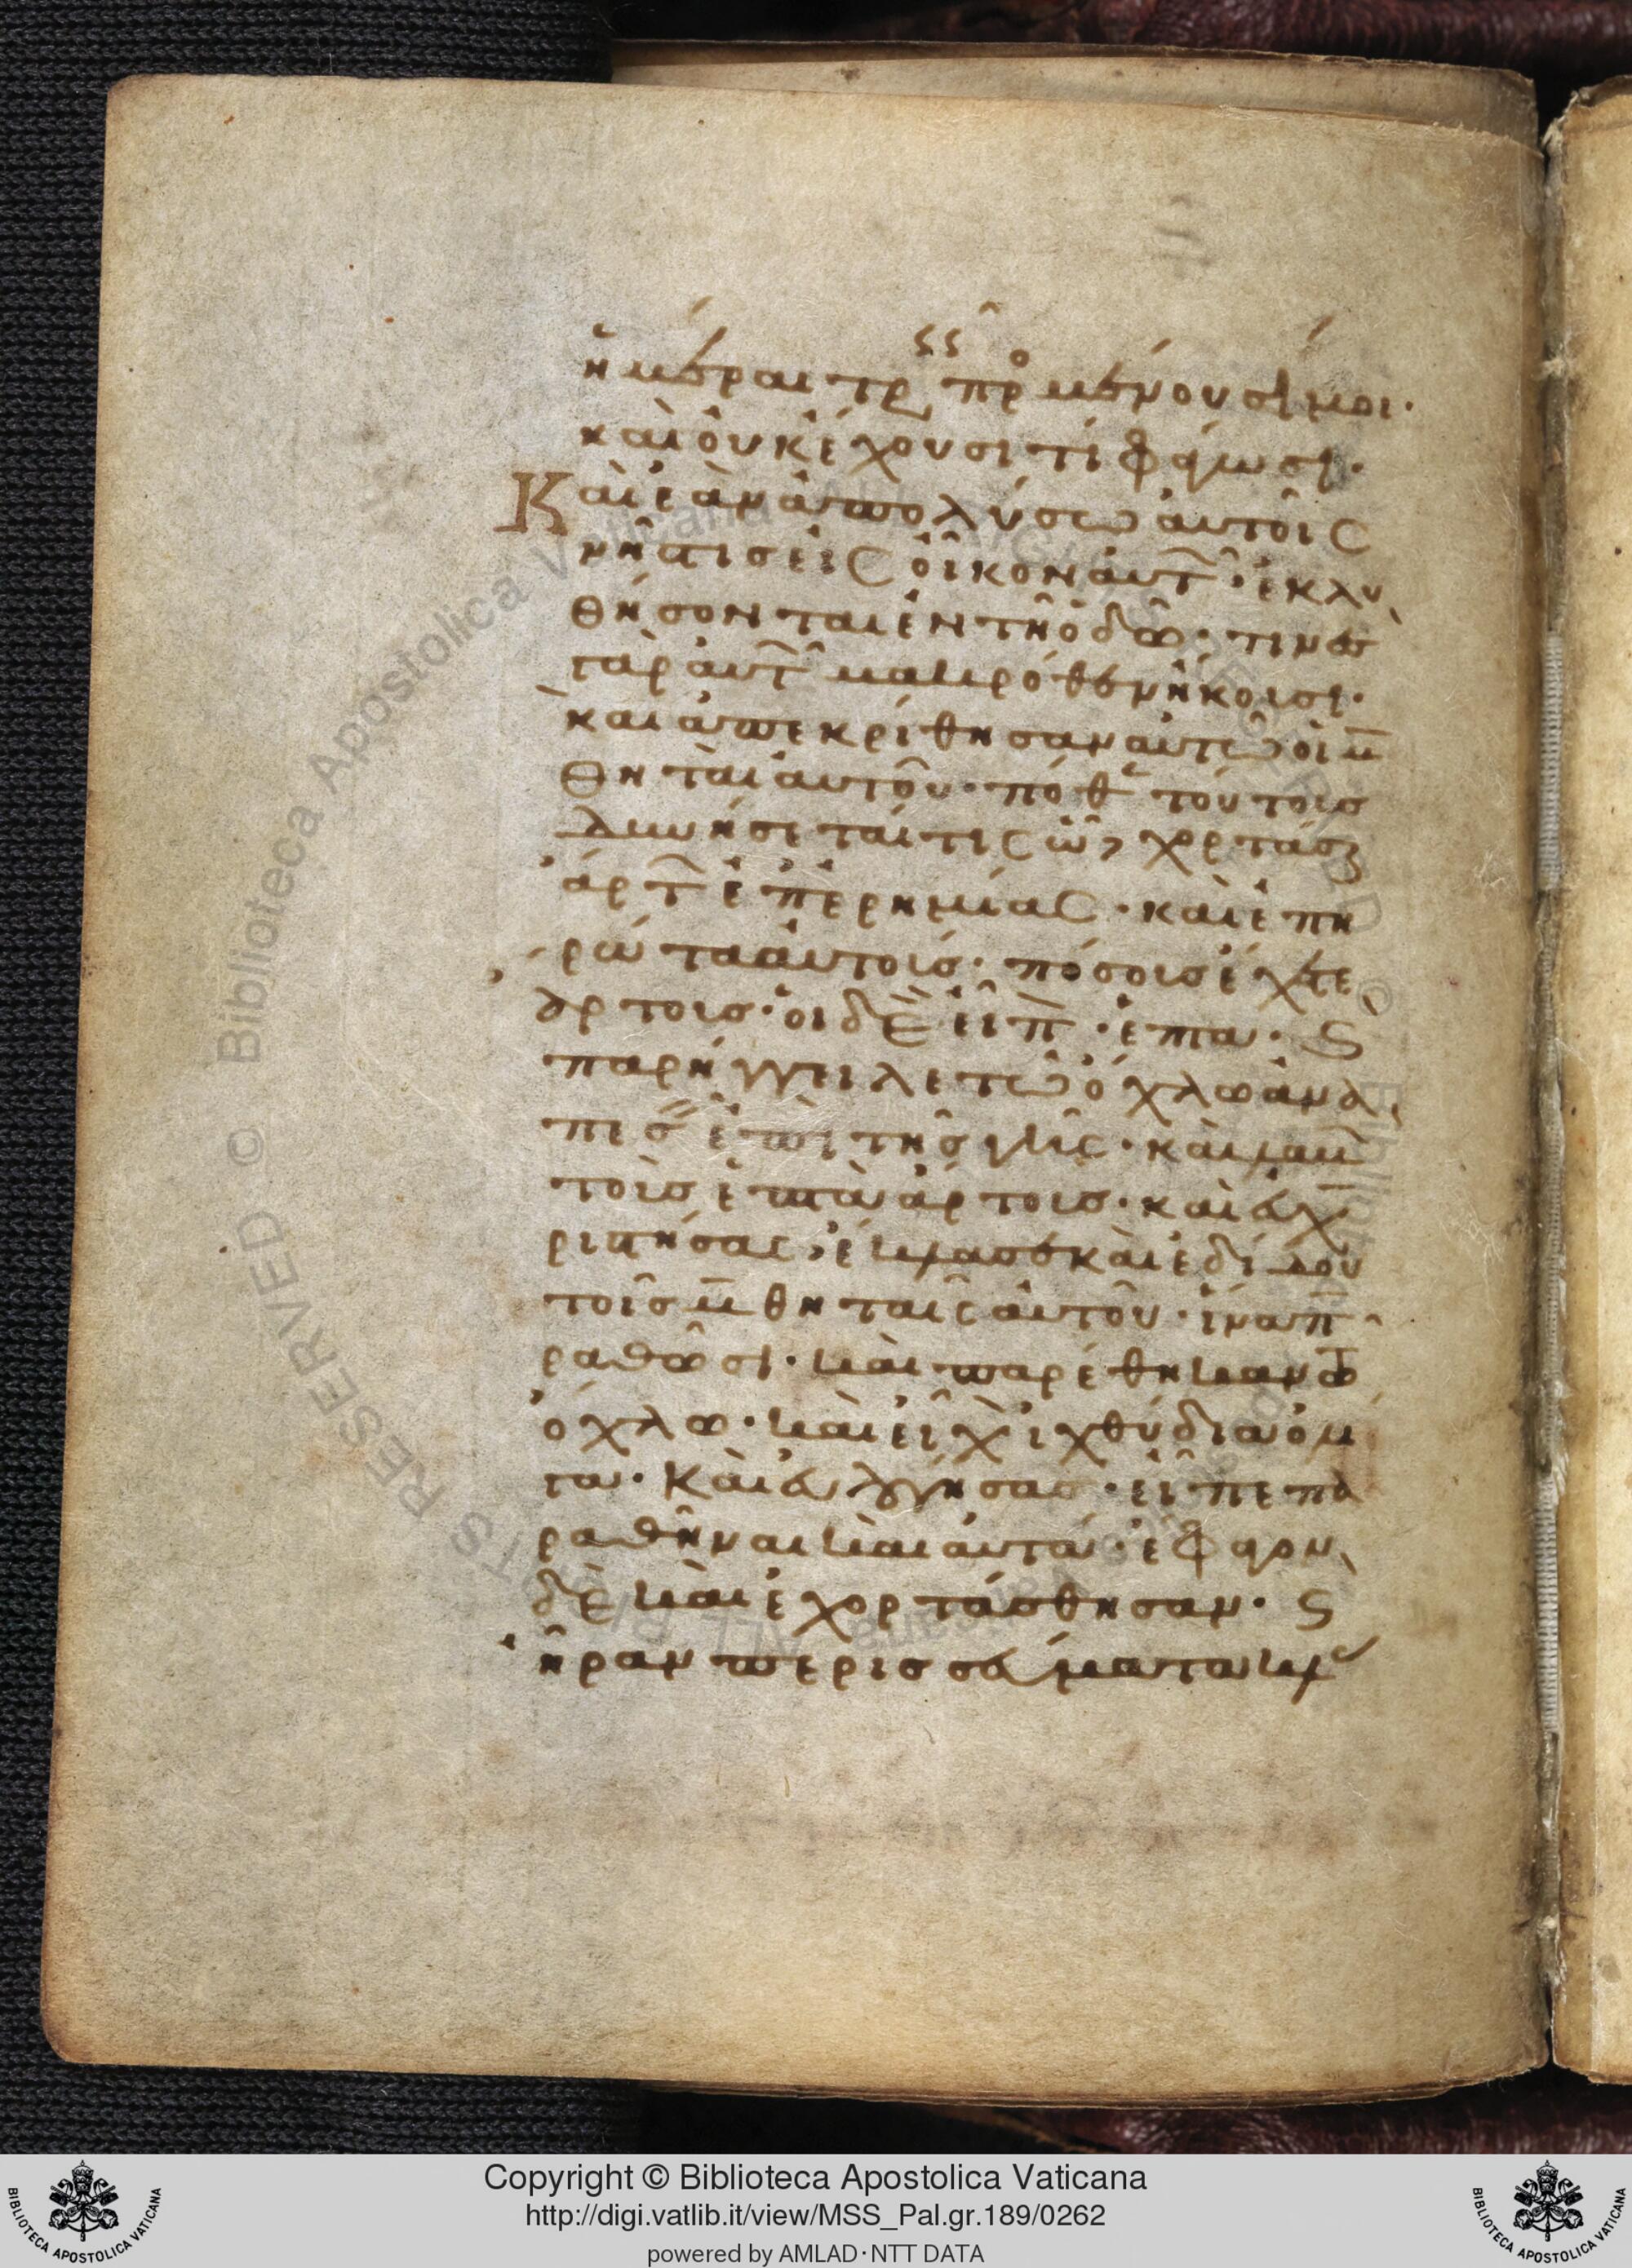 ἡμέραι τρ πρ μένουσί μοι·
καὶ οὐκ ἔχουσι τί φάγωσι·
Καὶ ἐὰν ἀπολύσω αὐτοῖς
νήστις εἰς οἶκον αὐτ· ἐκλυ
θήσονται ἐν τῆ ὁδῶ· τινες
γὰρ αὐτ μακρόθεν ἥκουσι·
καὶ ἀπεκρίθησαν αὐτῶ οἱ μ
θηταὶ αὐτοῦ· πόθ τούτους
δυνήσεταί τις ὧδ χορτάσ
ἄρτ ἐπ ἐρημίας· καὶ ἐπη
ρώτα αὐτούς· πόσους ἔχετε
ἄρτους· οἱ δὲ εἶπ· ἑπτά· Ϛ
παρήγγειλε τῶ ὄχλω ἀνα
πεσ ἐπὶ τῆς γῆς· καὶ λαβ
τοὺς ἑπτὰ ἄρτους· καὶ εὐχ
ριστήσας, ἔκλασε καὶ ἐδίδου
τοῖς μ θηταῖς αὐτοῦ· ἵνα π
ραθῶσι· καὶ παρέθηκαν τ
ὄχλω· καὶ εἶχ ἰχθύδια ὀλί
γα· Καὶ εὐλογήσας· εἶπε πα
ραθῆναι καὶ αὐτά· ἔφαγον
δὲ καὶ ἐχορτάσθησαν· Ϛ
ἦραν περισσεύματα κλ
Copyright © Biblioteca Apostolica Vaticana
http://digi.vatlib.it/view/MSS_Pal.gr.189/0262
powered by AMLAD·NTT DATA
BIBLIOTECA APOSTOLICA VATICANA
BIBLIOTECA APOSTOLICA VATICANA